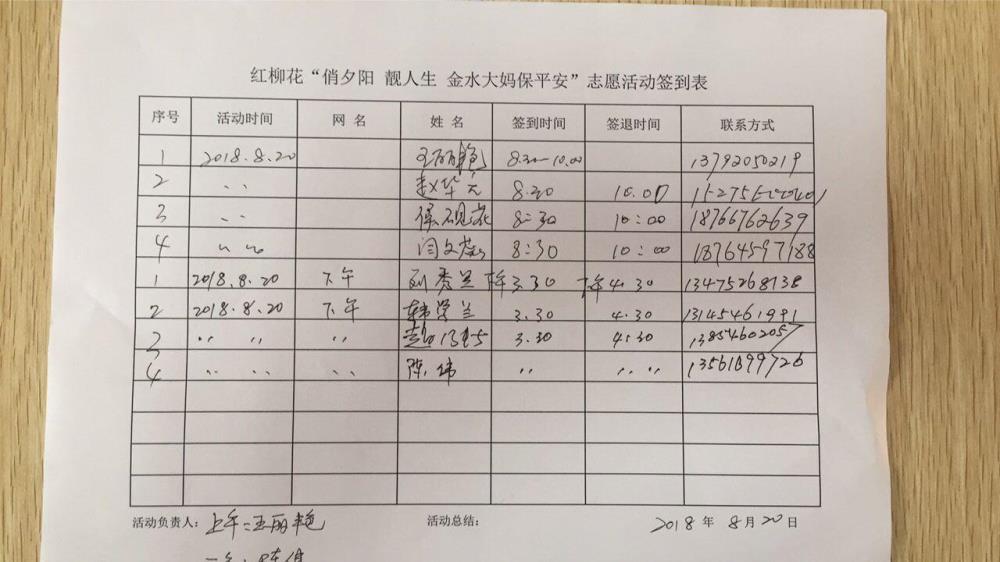 红柳花“俏夕阳 靓人生 金水大妈保平安”志愿活动签到表
序号 活动时间 网名 姓名 签到时间 签退时间 联系方式
1 2018.8.20 王丽艳 8.30-10.00 13792050219
2 〃 赵华 8.30 10.00
3 〃 8:30 10:00 18766762639
4 〃 闫文 8:30 10:00 18764597188
1 2018.8.20 下午 刘秀兰 下午3.30 下午4.30 13475268138
2 2018.8.20 下午 韩学兰 3.30 4.30 13145461991
3 〃 〃 〃 3.30 4.30 13854602057
4 〃 〃 〃 陈伟 〃 〃 〃 13561099726
活动负责人：上午：王丽艳 活动总结： 2018年8月20日